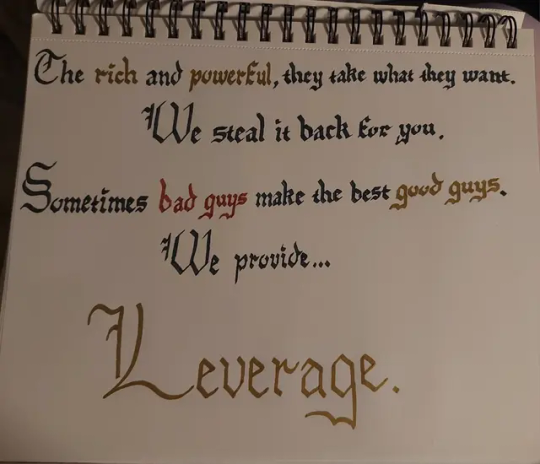 The rich and powerful, they take what they want.
We steal it back for you.
Sometimes bad guys make the best good guys.
We provide...
Leverage.